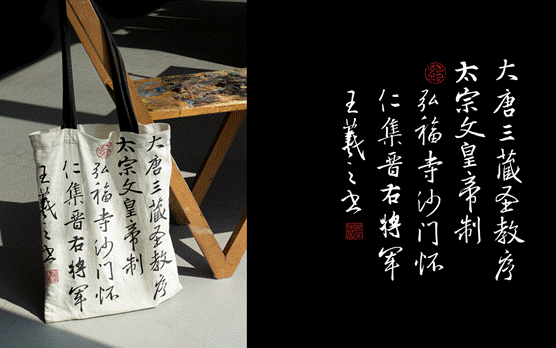 大唐三藏圣教序
太宗文皇帝制
弘福寺沙门怀
仁集晋右将军
王羲之书
大唐三藏圣教序
太宗文皇帝制
弘福寺沙门怀
仁集晋右将军
王羲之书